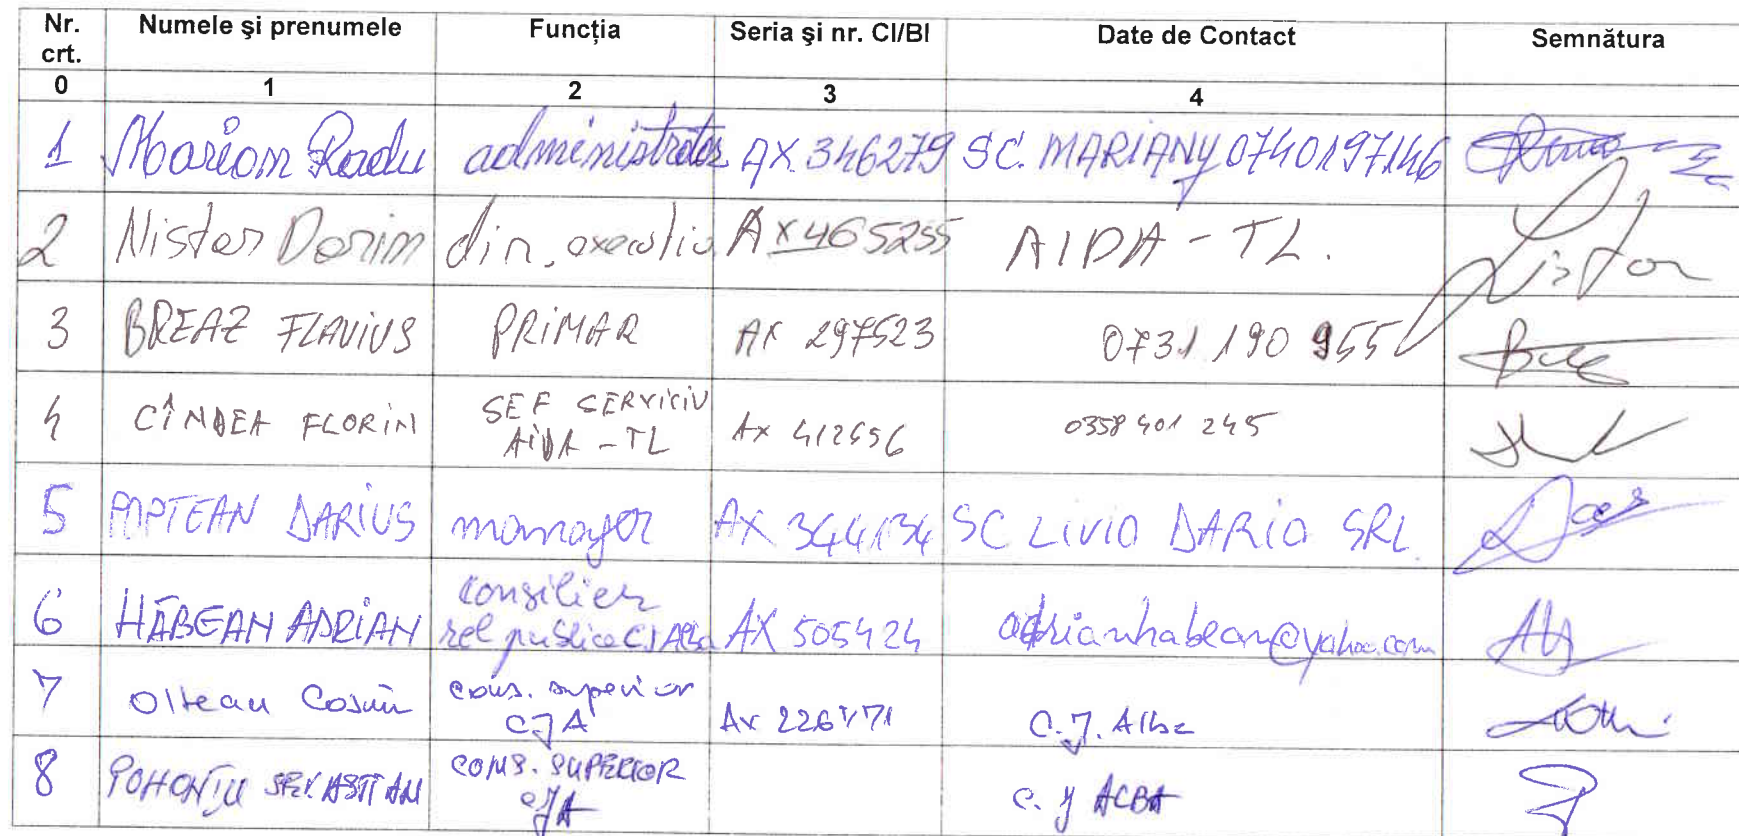 Nr. crt. Numele și prenumele Funcția Seria și nr. CI/BI Date de Contact Semnătura
0 1 2 3 4
1 Marian Radu administrator AX 346279 SC. MARIANY 0740197146
2 Nistor Dorin dir. executiv AX 465255 AIDA - TL.
3 BREAZ FLAVIUS PRIMAR AX 297523 0731 190 955
4 CÎNDEA FLORIN SEF SERVICIU AIDA - TL AX 0358 401 245
5 POPTEAN DARIUS manager AX 344134 SC LIVIO DARIO SRL
6 HĂBEAN ADRIAN consilier rel publice CJ Alba AX 505424 adrianhabean@yahoo.com
7 Oltean Cosmin cons. superior CJA AX C.J. Alba
8 POHONȚU SEVASTIAN CONS. SUPERIOR CJA C.J ALBA